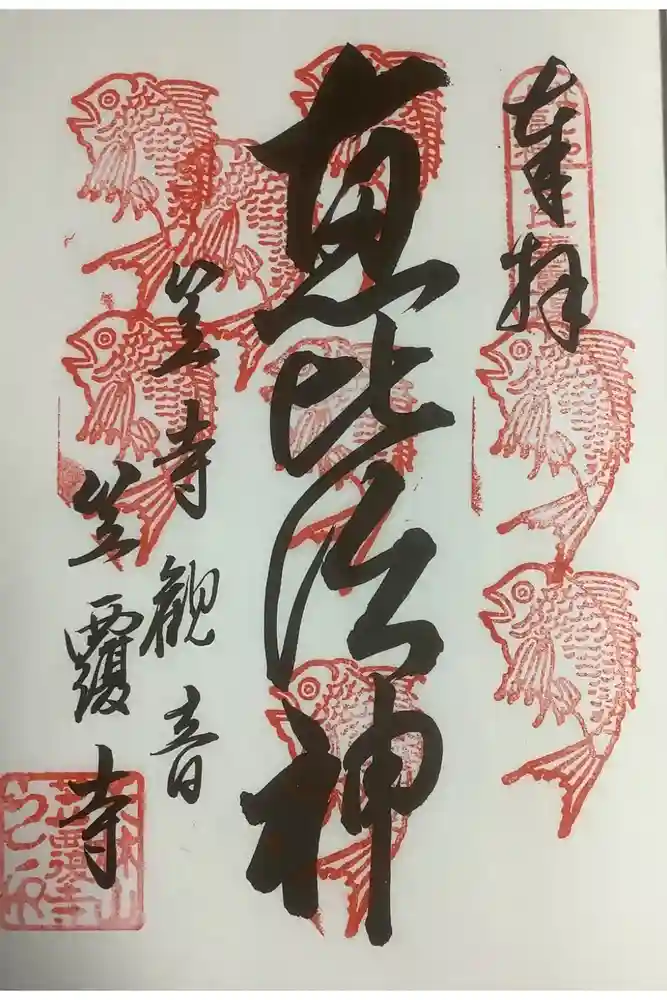 奉拝
恵比須神
笠寺観音
笠覆寺